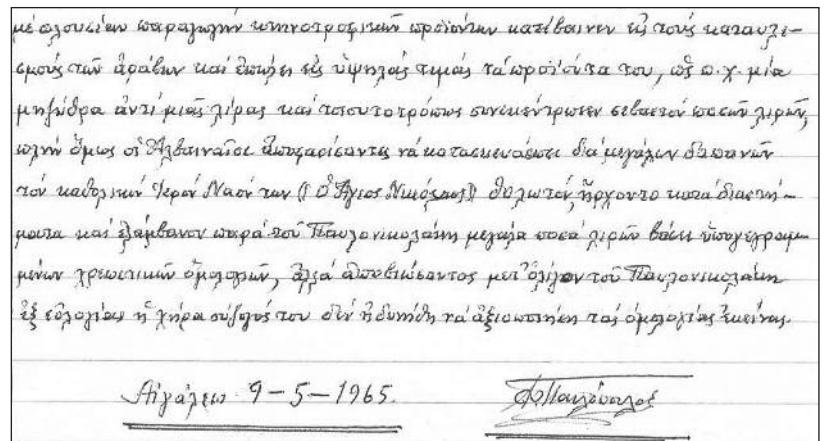 μέ πλουσίαν παραγωγήν κτηνοτροφικῶν προϊόντων κατέβαινεν εἰς τούς καταυλι-
σμούς τῶν Ἀράβων καί ἐπώλει εἰς ὑψηλάς τιμάς τά προϊόντα του, ὡς π.χ. μία
μηζύδρα ἀντί μιᾶς λίρας καί τοιουτοτρόπως συνεκέντρωσεν σεβαστόν ποσόν λιρῶν,
πλήν ὅμως οἱ Ἀλβαιναῖοι ἀποφασίσαντες νά κατασκευάσωσι διά μεγάλων δαπανῶν
τόν καθολικόν Ἱερόν Ναόν των (Ὁ Ἅγιος Νικόλαος) θολωτόν, ἤρχοντο κατά διαστή-
ματα καί ἐλάμβανον παρά τοῦ Παυλονικολάκη μεγάλα ποσά λιρῶν βάσει ὑπογεγραμ-
μένων χρεωστικῶν ὁμολογιῶν, ἀλλά ἀποβιώσαντος μετ' ὀλίγον τοῦ Παυλονικολάκη
ἐξ εὐλογίας ἡ χήρα σύζυγός του δέν ἠδυνήθη νά ἀξιοποιήση τάς ὁμολογίας ἐκείνας.
Αἰγάλεω 9-5-1965.